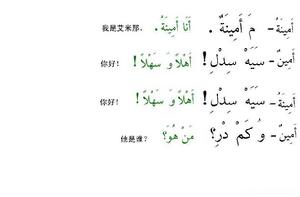 أَمِينَةُ - مَ أَمِينَةٌ . أَنَا أَمِينَةُ . 我是艾米那.
أَمِينٌ - سَيَهْ سِدْلِ ! أَهْلاً وَ سَهْلاً ! 你好!
أَمِينَةُ - سَيَهْ سِدْلِ ! أَهْلاً وَ سَهْلاً ! 你好!
أَمِينٌ - وُ كَمْ دْرِ؟ مَنْ هُوَ؟ 他是谁?